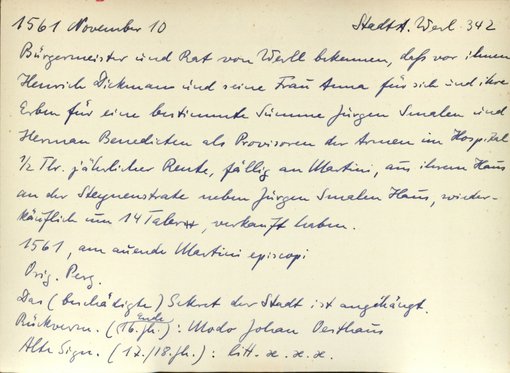 1561 November 10 Stadt A. Werl 342
Bürgermeister und Rat von Werll bekennen, daß vor ihnen
Henrich Dickmann und seine Frau Anna für sich und ihre
Erben für eine bestimmte Summe Jürgen Smalen und
Herman Benedicten als Provisoren der Armen im Hospital
1/2 Tlr. jährlicher Rente, fällig an Martini, aus ihrem Haus
an der Steynenstrate neben Jürgen Smalen Haus, wieder-
käuflich um 14 Taler, verkauft haben.
1561, am avende Martini episcopi
Orig. Perg.
Das (beschädigte) Sekret der Stadt ist angehängt.
Rückverm. (Ende 16. Jh.): Modo Johan Oesthaus
Alte Sign. (17./18. Jh.): litt. x. x. x.